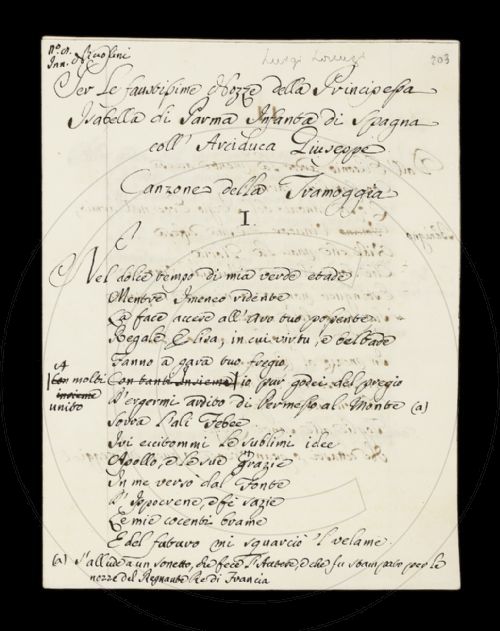 Luigi Lorenzi
203
Per le faustissime Nozze della Principessa
Isabella di Parma Infanta di Spagna
coll' Arciduca Giuseppe
Canzone della Tramoggia
I.
Nel dolce tempo di mia verde etade
Mentre Imeneo ridente
La face accese all' Avo tuo possente,
Regale Elisa, in cui virtu, e beltade
Fanno a gara tuo fregio,
A
Con molti Con tanti Insieme io pur godei del pregio
insieme
unito
D' ergermi ardito di Permesso al Monte (a)
Sovra l' ali Febee
Ivi eccitommi le sublimi idee
Apollo, e le sue Grazie
In me versò dal Fonte
D' Ippocrene, e fè sazie
Le mie cocenti brame
E del futuro mi squarciò 'l velame.
(a) S' allude a un Sonetto, che fece l' Autore, e che fu stampato per le
nozze del Regnante Re di Francia